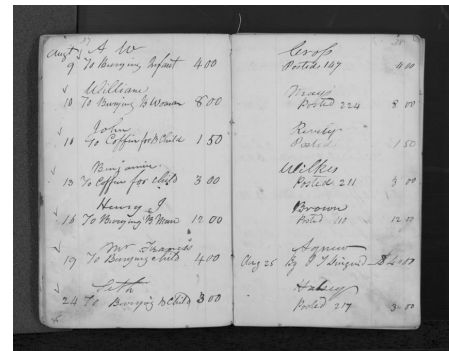 37
Augt A W
9 To Burying Infant 4 00
William
10 To Burying B Woman 8 00
John
11 To Coffin for B Child 1 50
Benjamin
13 To Coffin for child 3 00
Henry J.
16 To Burying B Man 12 00
Mr Francis
19 To Burying child 4 00
Seth
24 To Burying B Child 3 00
38
Cross
Posted 147 4 00
Mays
Posted 224 8 00
Rively
Posted 1 50
Wilkes
Posted 211 3 00
Brown
Posted 110 12 00
Agnew
Aug 25 By J T
Halsey
Posted 217 3 00